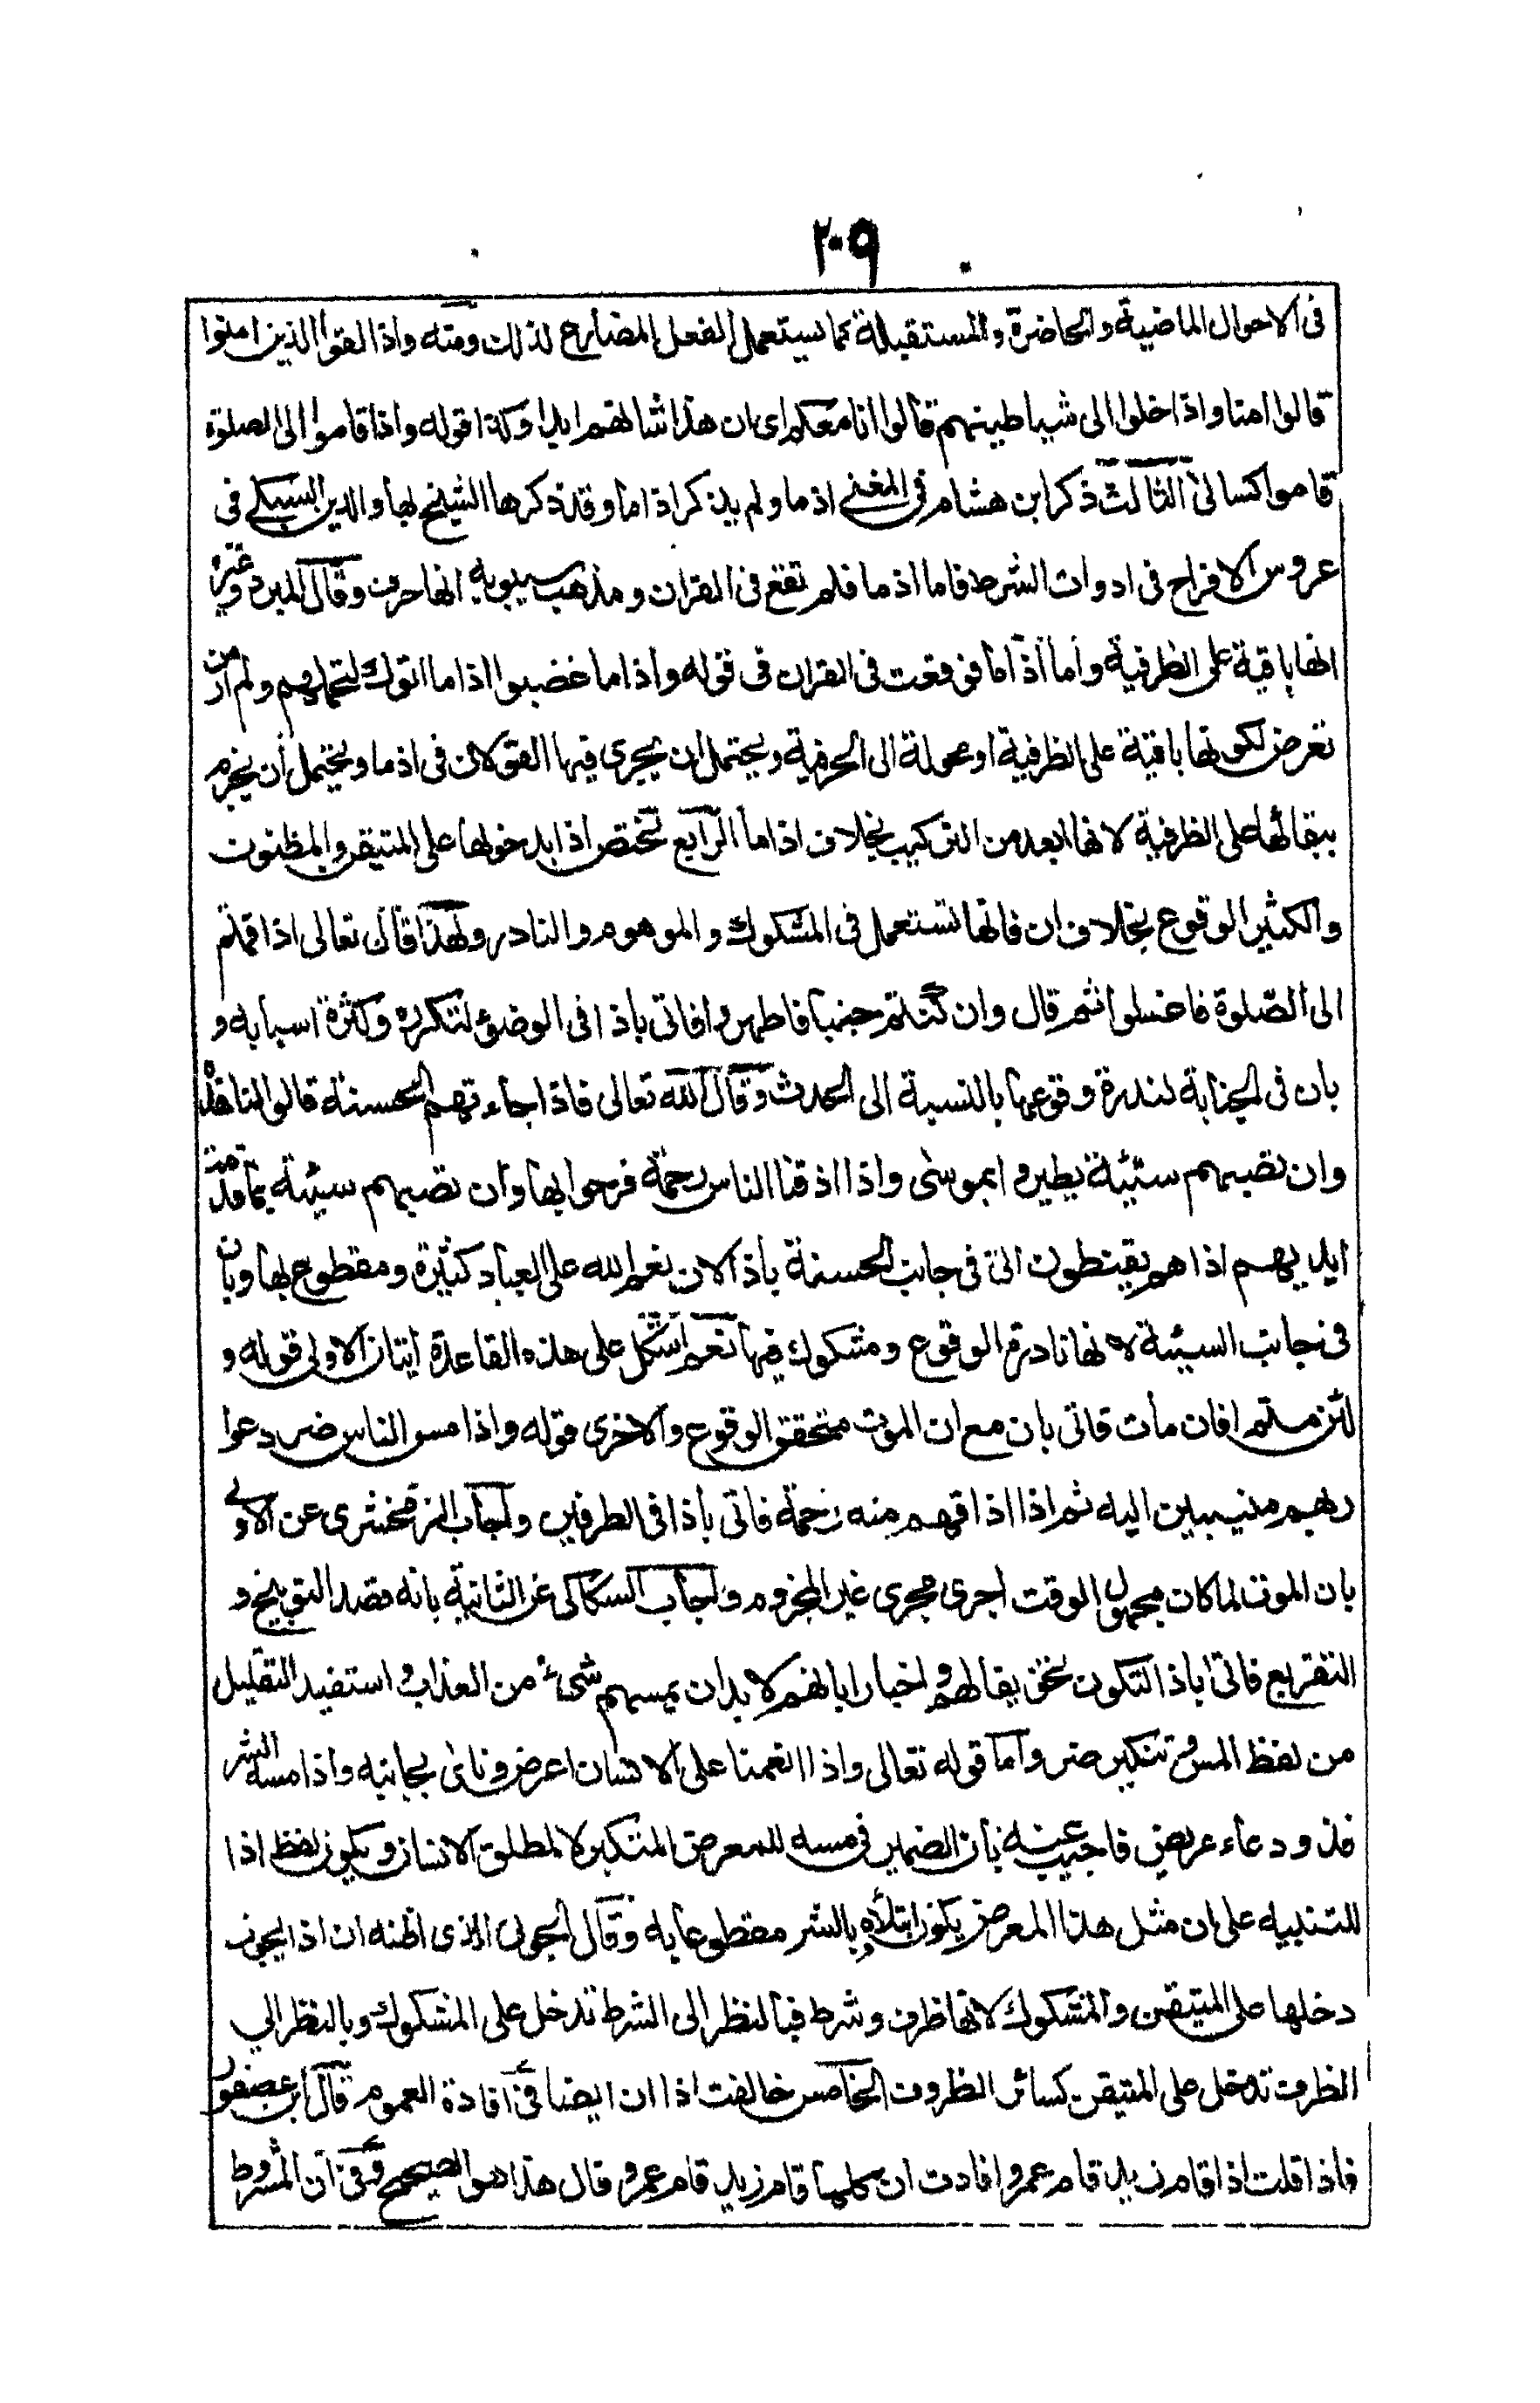 ٢٠٩
فى الاحوال الماضية والحاضرة والمستقبلة كما يستعمل الفعل المضارع لذلك ومنه واذا لقوا الذين امنوا
قالوا امنا واذا خلوا الى شياطينهم قالوا انا معكم اى ان هذا شانهم ابدا وكذا قوله واذا قاموا الى الصلوة
قاموا كسالى الثالث ذكر ابن هشام فى المغنى اذ ما ولم يذكر اذا ما وقد ذكرها الشيخ بهاء الدين السبكى فى
عروس الافراح فى ادوات الشرط فاما اذ ما فلم تقع فى القران ومذهب سيبويه انها حرف وقال المبرد وغيره
انها باقية على الظرفية واما اذا ما فوقعت فى القران فى قوله واذا ما غضبوا اذا ما اتوك لتحملهم ولم ار من
تعرض لكونها باقية على الظرفية او محولة الى الحرفية ويحتمل ان يجرى فيها القولان فى اذ ما ويحتمل ان يجزم
ببقائها على الظرفية لانها ابعد من التركيب بخلاف اذ ما الرابع تختص اذا بدخولها على المتيقن والمظنون
والكثير الوقوع بخلاف ان فانها تستعمل فى المشكوك والموهوم والنادر ولهذا قال تعالى اذا قمتم
الى الصلوة فاغسلوا ثم قال وان كنتم جنبا فاطهروا فاتى باذا فى الوضوء لتكرره وكثرة اسبابه و
بان فى الجنابة لندرة وقوعها بالنسبة الى الحدث وقال الله تعالى فاذا جاءتهم الحسنة قالوا لنا هذه
وان تصبهم سيئة يطيروا بموسى واذا اذقنا الناس رحمة فرحوا بها وان تصبهم سيئة بما قدمت
ايديهم اذا هم يقنطون اتى فى جانب الحسنة باذا لان نعم الله على العباد كثيرة ومقطوع بها وبان
فى جانب السيئة لانها نادرة الوقوع ومشكوك فيها نعم اشكل على هذه القاعدة ايتان الاولى قوله و
لئن متم افان مات فاتى بان مع ان الموت متحقق الوقوع والاخرى قوله واذا مس الناس ضر دعوا
ربهم منيبين اليه ثم اذا اذاقهم منه رحمة فاتى باذا فى الطرفين واجاب الزمخشرى عن الاولى
بان الموت لما كان مجهول الوقت اجرى مجرى غير المجزوم واجاب السكاكى عن الثانية بانه قصد التوبيخ و
التقريع فاتى باذا لتكون تخويفا لهم واخبارا بانهم لا بد ان يمسهم شىء من العذاب واستفيد التقليل
من لفظ المس وتنكير ضر واما قوله تعالى واذا انعمنا على الانسان اعرض ونأى بجانبه واذا مسه الشر
فذو دعاء عريض فاجيب عنه بان الضمير فى مسه للمعرض المتكبر لا لمطلق الانسان ويكون لفظ اذا
للتنبيه على ان مثل هذا المعرض يكون ابتلاؤه بالشر مقطوعا به وقال الجوى الذى اظنه ان اذا يجوز
دخلها على المتيقن والمشكوك لانها ظرف وشرط فبالنظر الى الشرط تدخل على المشكوك وبالنظر الى
الظرف تدخل على المتيقن كسائر الظروف الخامس خالفت اذا ان ايضا فى افادة العموم قال ابن عصفور
فاذا قلت اذا قام زيد قام عمرو افادت ان كلما قام زيد قام عمرو قال هذا هو الصحيح وفى ان المشروط